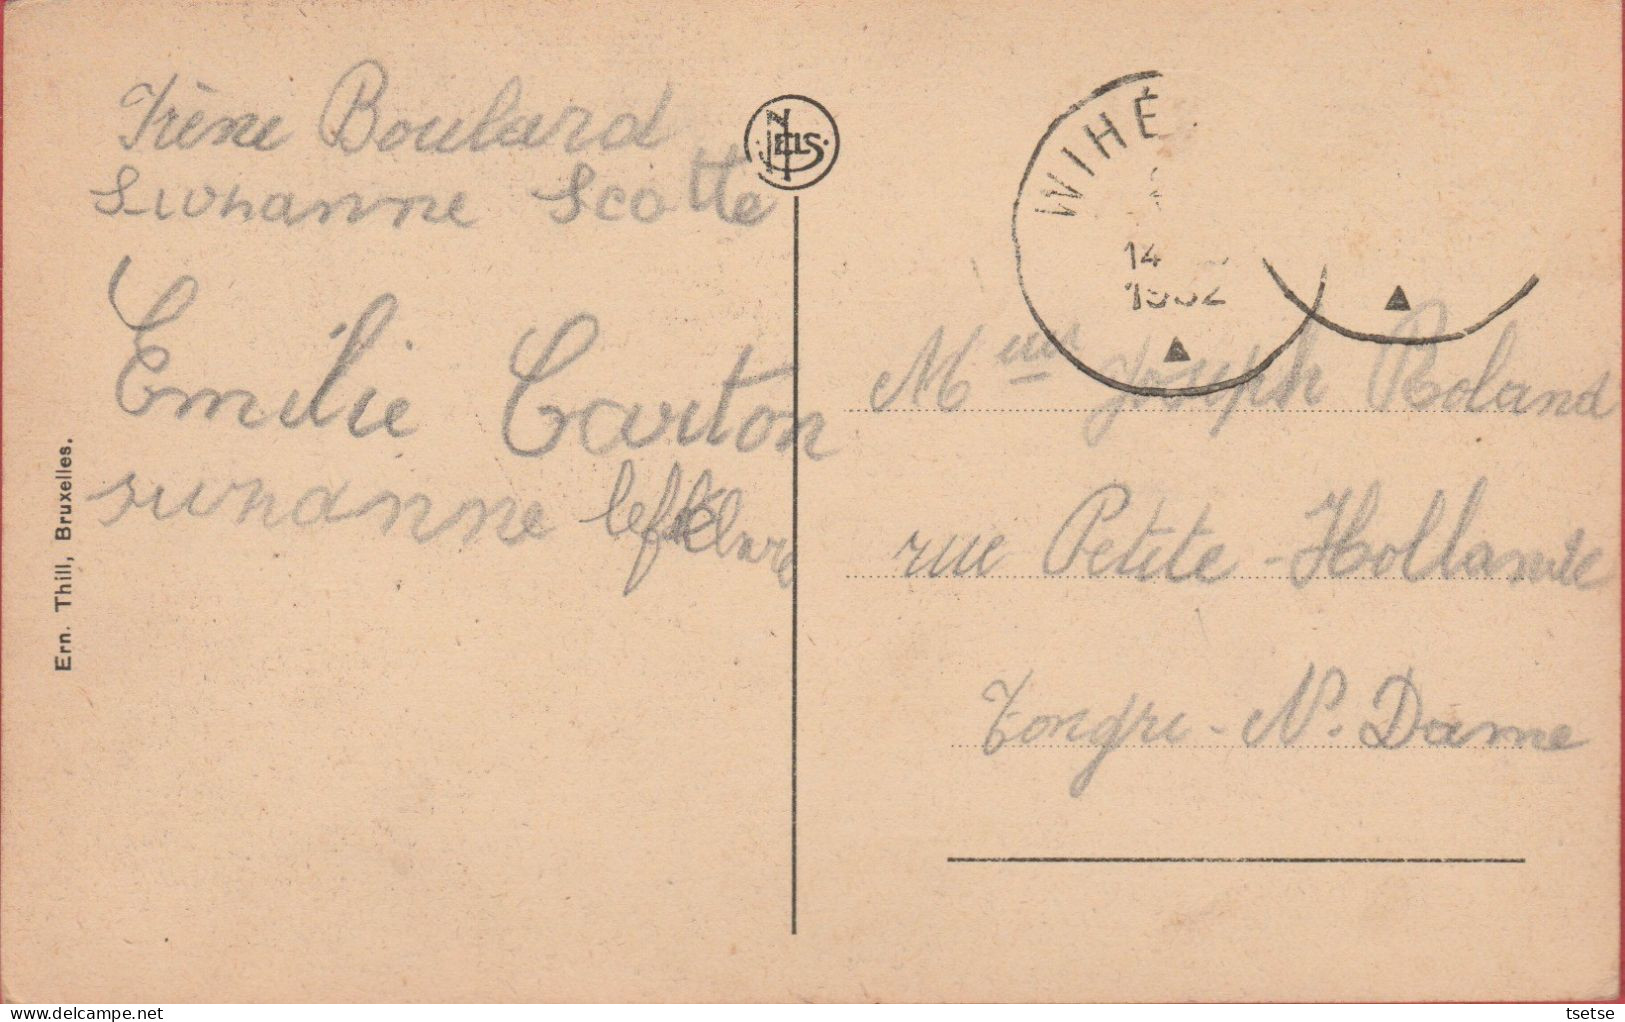 Irène Boulard
Suzanne Scotte
Emilie Carton
suzanne
NELS
Ern. Thill, Bruxelles.
WIHÉ
14
1932
Joseph Roland
rue Petite-Hollande
Tongre-N. Dame
tsetse